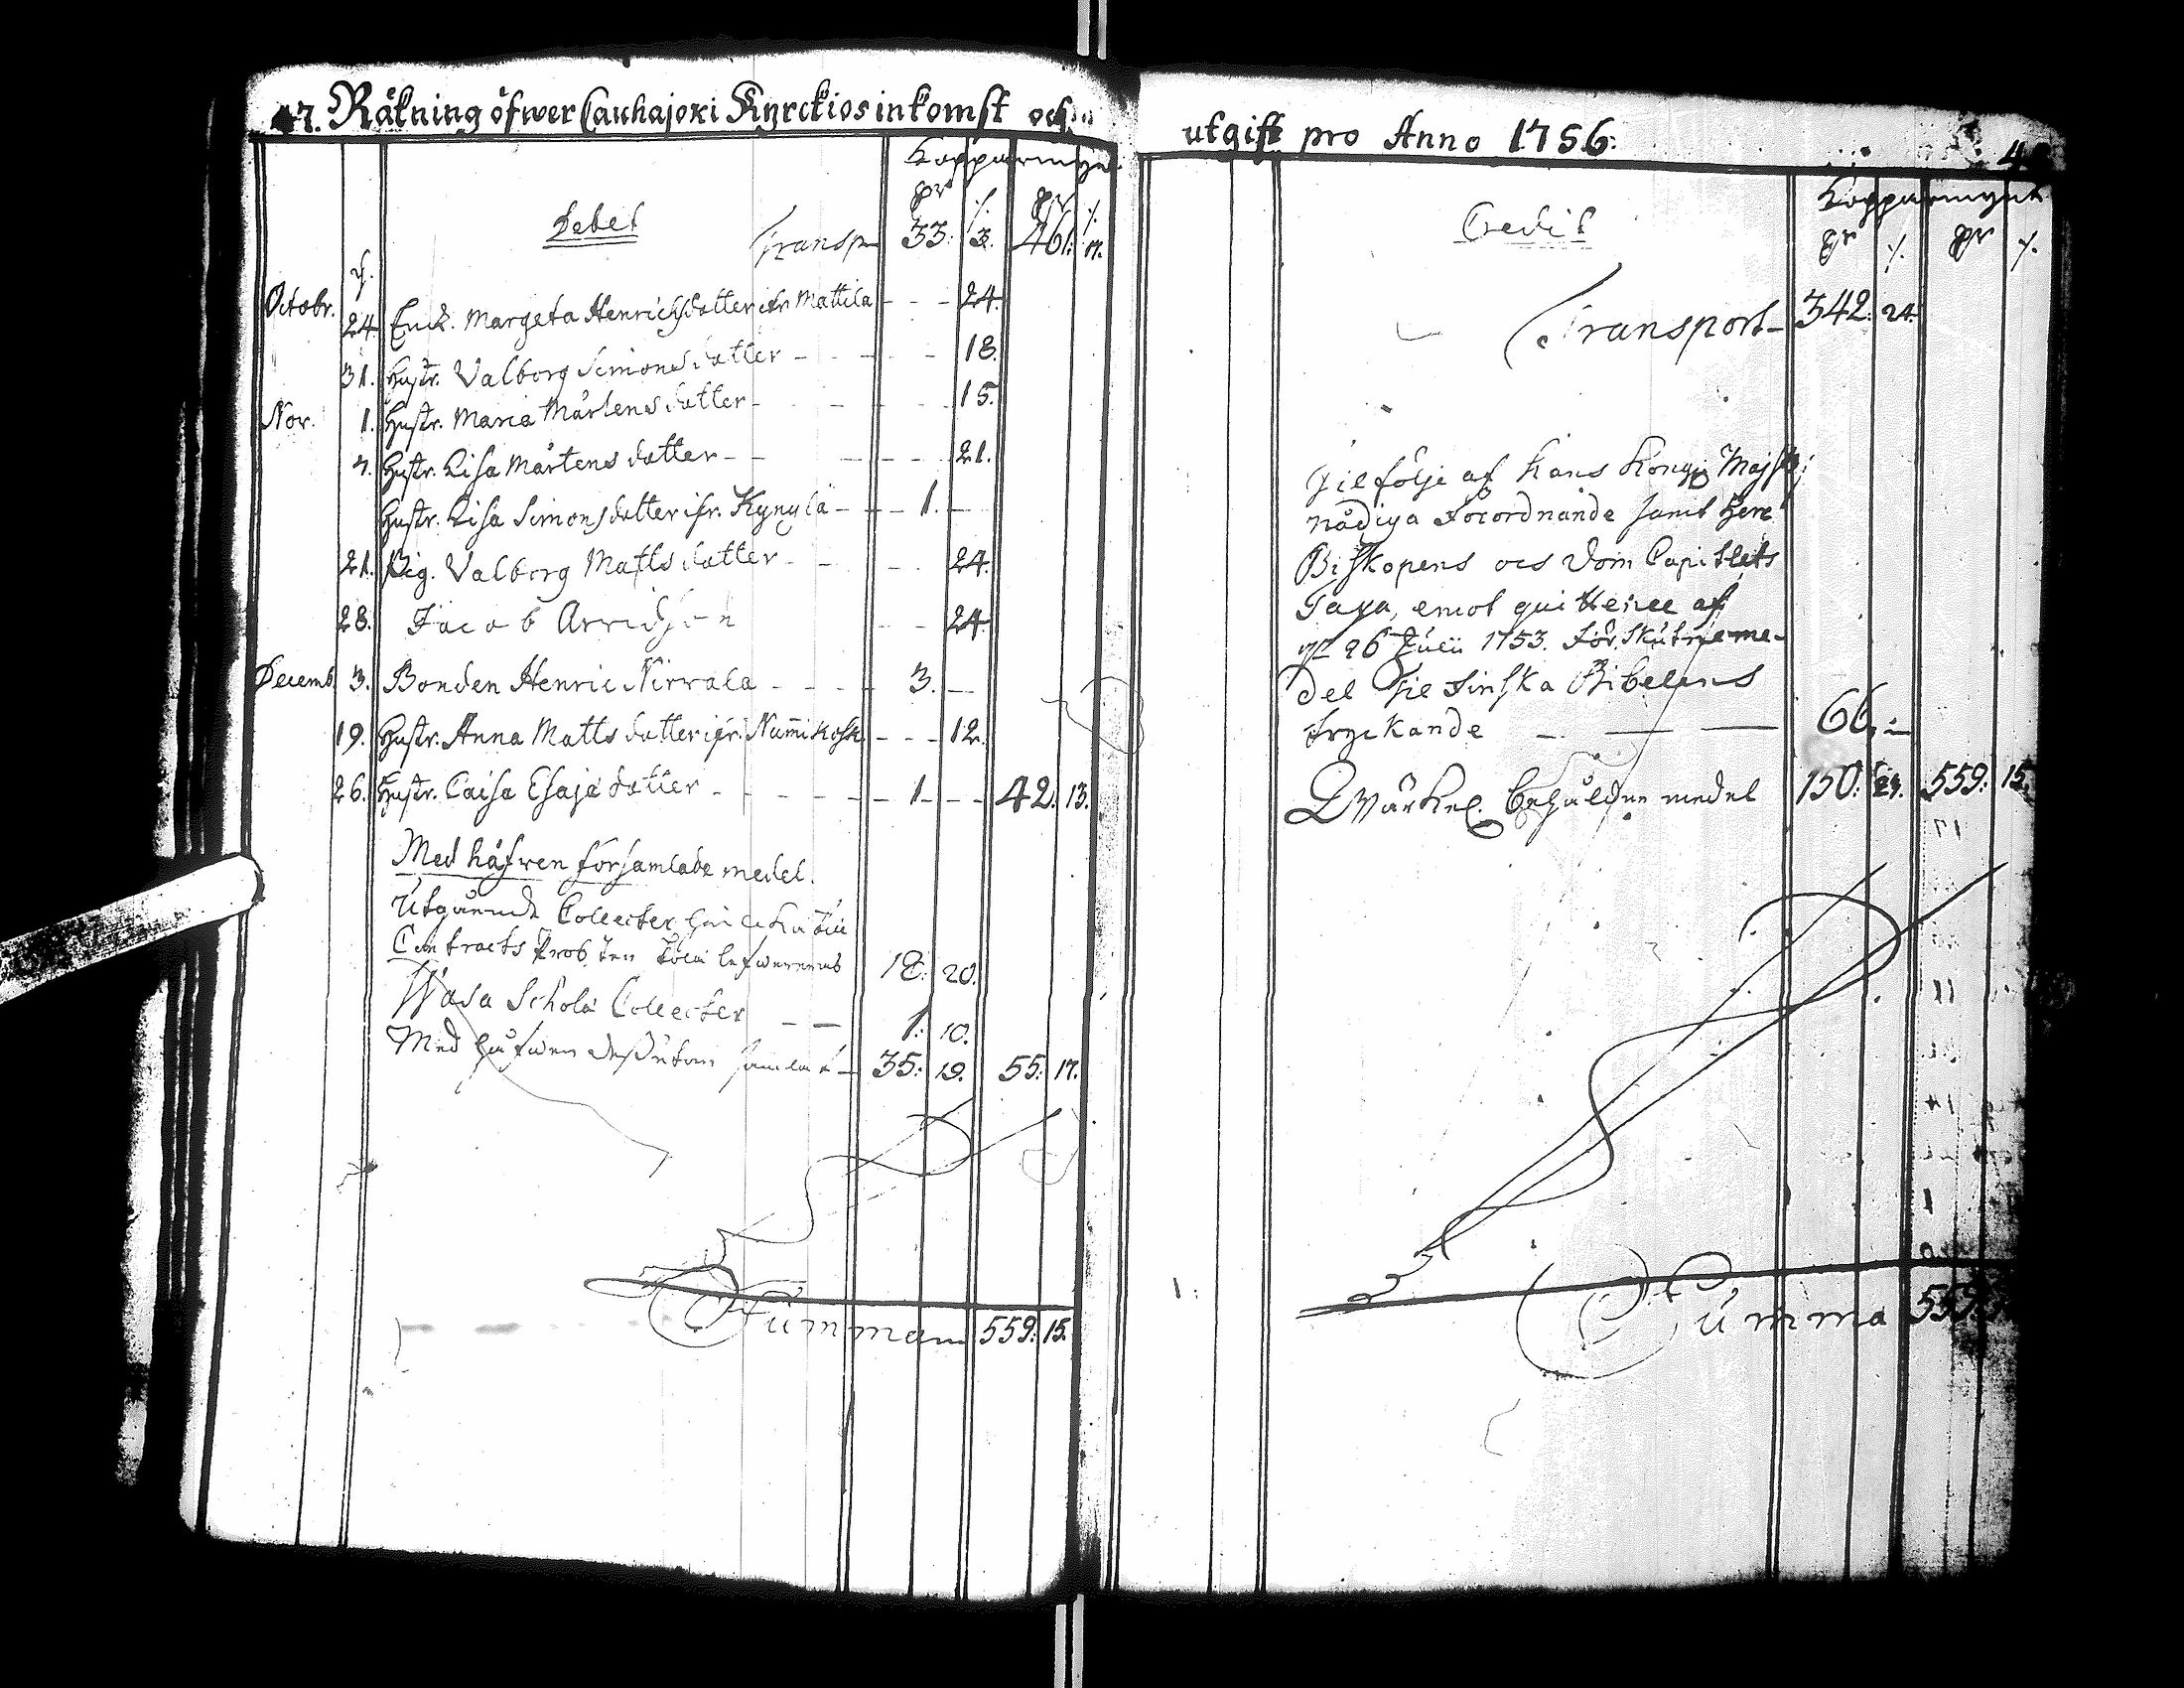 47. Räkning öfwer Cauhajoki Kyrckios inkomst och
Kopparmynt
Debet
Transp 33. 3. 461. 17.
Octobr. 24 Enck. Margeta Henrichsdotter ifr. Mattila - - - 24.
31. Hustr. Valborg Simonsdotter - - - 18.
Nov. 1. Hustr. Maria Mårtensdotter - - - 15.
7. Hustr. Lisa Mårtensdotter - - - 21.
Hustr. Lisa Simonsdotter ifr. Kynylä - - 1. -
21. Pig. Valborg Mattsdotter - - - 24.
28. Jacob Arvidson - - 24.
Decemb. 3. Bonden Henric Nirvala - - - 3. -
19. Hustr. Anna Mattsdotter ifr. Num̄ikosk - - - 12.
26. Hustr. Caisa Esajædotter - - - 1 - - 42. 13.
Med håfwen församlade medel.
Utgående Collecter
Contracts Prosten 18. 20.
Wasa Schola Collecter - - 1. 10.
Med håfwen dessutom samlat - 35. 19. 55. 17.
Summa 559. 15.
utgift pro Anno 1756.
Kopparmynt
Credit
Transport - 342. 24.
Til följe af Hans Kongl. Majst:s
nådiga Förordnande samt Herr
Biskopens och Dom Capitlets
Taxa, emot quittence af
26 Julii 1753. För Skutne me-
del til Finska Bibelens
tryckande - - - 66. -
Qvarhel. behåldne medel 150. 24. 559. 15.
Summa 559.